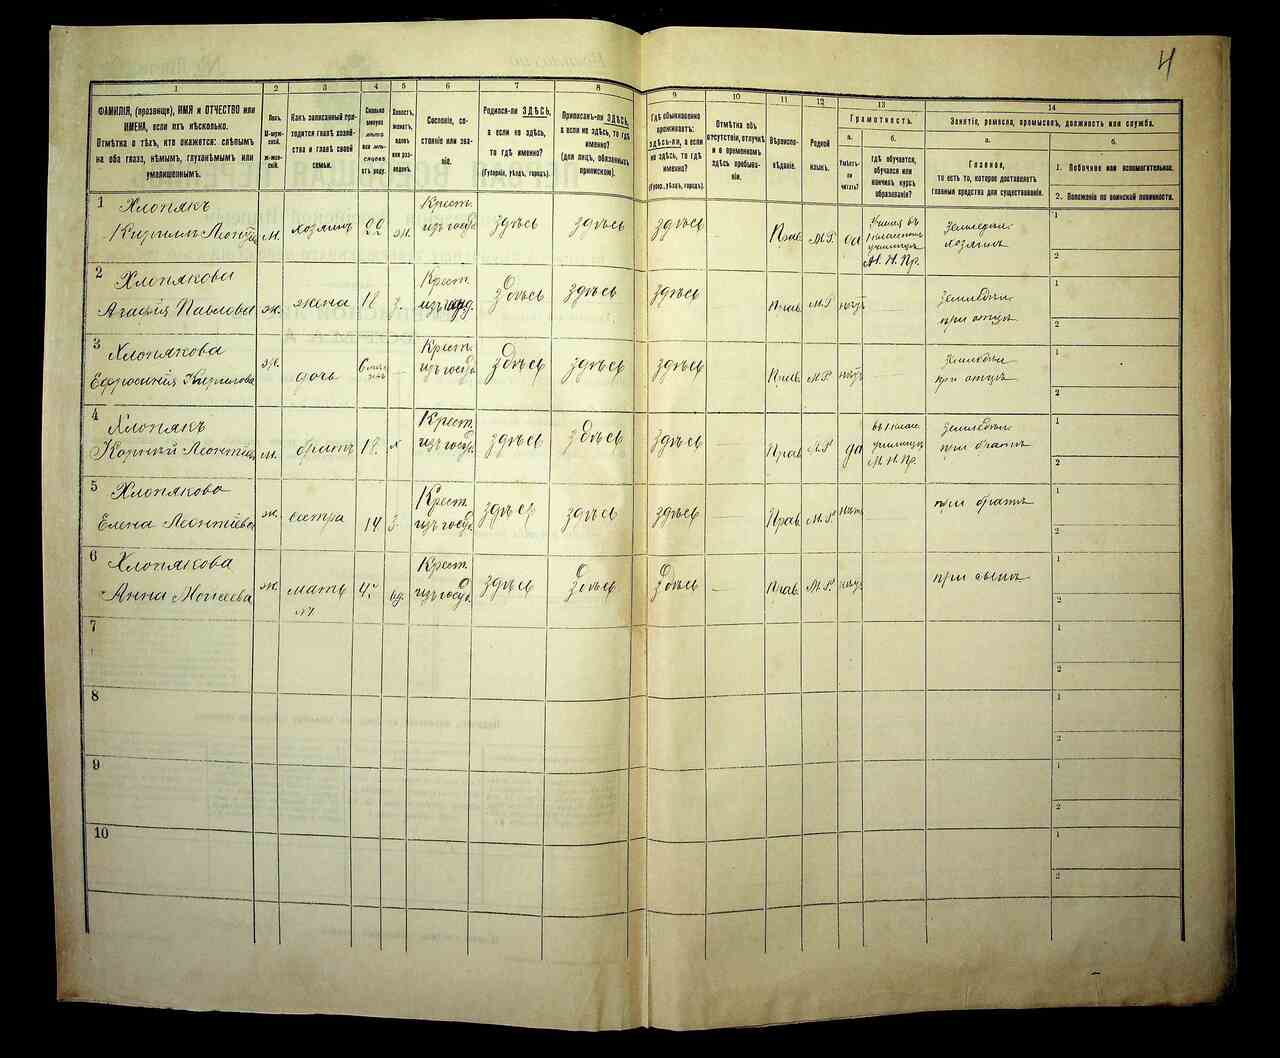 4
1 2 3 4 5 6 7 8 9 10 11 12 13 14
ФАМИЛІЯ, (прозвище), ИМЯ и ОТЧЕСТВО или
ИМЕНА, если ихъ нѣсколько.
Отмѣтка о тѣхъ, кто окажется: слѣпымъ
на оба глаза, нѣмымъ, глухонѣмымъ или
умалишеннымъ.
Полъ.
М-муж-
ской.
Ж-жен-
скій.
Какъ записанный при-
ходится главѣ хозяй-
ства и главѣ своей
семьи.
Сколько
минуло
лѣтъ
или мѣся-
цевъ
отъ роду.
Холостъ,
женатъ,
вдовъ
или раз-
веденъ.
Сословіе, со-
стояніе или зва-
ніе.
Родился-ли ЗДѢСЬ,
а если не здѣсь,
то гдѣ именно?
(Губернія, уѣздъ, городъ).
Приписанъ-ли ЗДѢСЬ,
а если не здѣсь, то гдѣ
именно?
(для лицъ, обязанныхъ
припискою).
Гдѣ обыкновенно
проживаетъ:
ЗДѢСЬ-ли, а если
не здѣсь, то гдѣ
именно?
(Губер., уѣздъ, городъ).
Отмѣтка объ
отсутствіи, отлучкѣ
и о временномъ
здѣсь пребыва-
ніи.
Вѣроиспо-
вѣданіе.
Родной
языкъ.
Грамотность.
а.
Умѣетъ-
ли
читать?
б.
гдѣ обучается,
обучался или
кончилъ курсъ
образованія?
Занятіе, ремесло, промыселъ, должность или служба.
а.
Главное,
то есть то, которое доставляетъ
главныя средства для существованія.
б.
1. Побочное или вспомогательное.
2. Положеніе по воинской повинности.
1 Хлопякъ Крест.
Кириллъ м. хозяинъ 22 ж. изъ госуд. здѣсь здѣсь здѣсь Прав. М.Р. да
1 классномъ
училищѣ
М. Н. Пр.
Земледѣл.
хозяинъ
1
2
2 Хлопякова Крест.
Агафія Павлова ж. жена 18 з. здѣсь здѣсь здѣсь — Прав. М.Р. нѣтъ —
при
1
2
3 Хлопякова Крест.
Ефросинія Кирилова ж. дочь 6 — изъ госуд. здѣсь здѣсь здѣсь — Прав. М.Р. нѣтъ —
при отцѣ
1
2
4 Хлопякъ Крест.
Корній м. братъ 18. х изъ госуд. здѣсь здѣсь здѣсь — Прав. М.Р. да
училищѣ
М. Н. Пр.
при братѣ
1
2
5 Хлопякова Крест.
Елена Леонтіева ж. сестра 14 з. изъ госуд. здѣсь здѣсь здѣсь — Прав. М.Р. нѣтъ
при братѣ
1
2
6 Хлопякова Крест.
Анна Моисеева ж. мать изъ госуд. здѣсь здѣсь здѣсь — Прав. М.Р. нѣтъ
при сынѣ
1
2
7
1
2
8
1
2
9
1
2
10
1
2